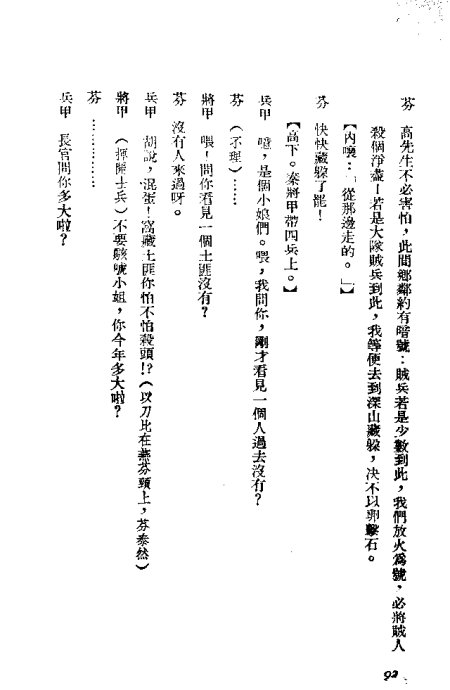 芬　高先生不必害怕，此間鄉鄰約有暗號：賊兵若是少數到此，我們放火爲號，必將賊人
殺個淨盡！若是大隊賊兵到此，我等便去到深山藏躲，决不以卵擊石。
【內喚：「從那邊走的。」】
芬　快快藏躲了罷！
【高下。秦將甲帶四兵上。】
兵甲　噫，是個小娘們。喂，我問你，剛才看見一個人過去沒有？
芬　（不理）……
將甲　喂！問你看見一個土匪沒有？
芬　沒有人來過呀。
兵甲　胡說，混蛋！窩藏土匪你怕不怕殺頭！？（以刀比在燕芬頸上，芬泰然）
將甲　（揮開士兵）不要駭唬小姐，你今年多大啦？
芬　……………
兵甲　長官問你多大啦？
92